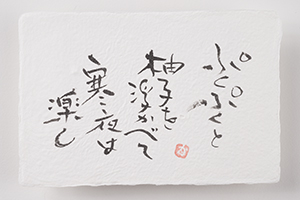 ぷくぷくと
柚子を
浮かべて
寒夜は
楽し